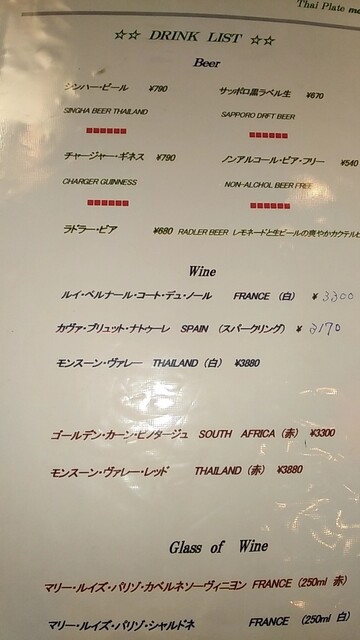 Thai Plate
☆☆ DRINK LIST ☆☆
Beer
シンハー・ビール ¥790
サッポロ黒ラベル生 ¥670
SINGHA BEER THAILAND
SAPPORO DRFT BEER
チャージャー・ギネス ¥790
ノンアルコール・ビア・フリー ¥540
CHARGER GUINNESS
NON-ALCHOL BEER FREE
ラドラー・ビア ¥680 RADLER BEER レモネードと生ビールの爽やかカクテルビ
Wine
ルイ・ベルナール・コート・デュ・ノール FRANCE (白) ¥ 3300
カヴァ・ブリュット・ナトゥーレ SPAIN (スパークリング) ¥ 3170
モンスーン・ヴァレー THAILAND (白) ¥3880
ゴールデン・カーン・ピノタージュ SOUTH AFRICA (赤) ¥3300
モンスーン・ヴァレー・レッド THAILAND (赤) ¥3880
Glass of Wine
マリー・ルイズ・パリゾ・カベルネソーヴィニヨン FRANCE (250ml 赤)
マリー・ルイズ・パリゾ・シャルドネ FRANCE (250ml 白)